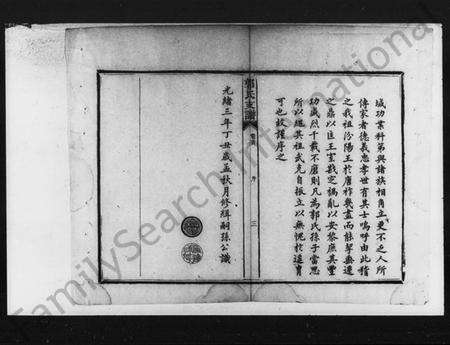 成功業科第與諸族相角立更不乏人所
傳家者德義忠孝世有其士嗚呼由此稽
之我祖汾陽王於唐祚幾盡而能挈墜
之鼎以匡王室戡定禍亂以安黎庶其豐
功盛烈千載不磨則凡為郭氏孫子當思
所以繩其祖武克自振立以無忝於追育
可也故謹序之
郭氏支譜
序
三
光緒三年丁丑歲孟秋月修緝嗣孫公識
FamilySearch International